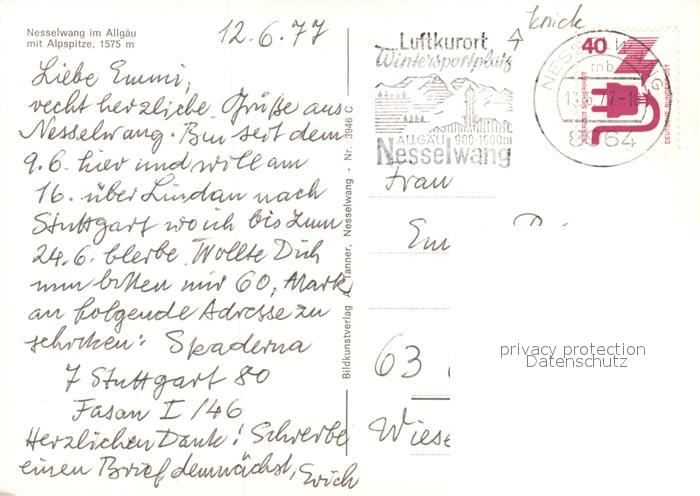 Nesselwang im Allgäu
mit Alpspitze, 1575 m
12.6.77
Liebe Emmi,
recht herzliche Grüße aus
Nesselwang. Bin seit dem
9.6. hier und will am
16. über Lindau nach
Stuttgart wo ich bis zum
24.6. bleibe. Wollte Dich
nun bitten mir 60,- Mark
an folgende Adresse zu
schicken: Spaderna
7 Stuttgart 80
Fasan I/46
Herzlichen Dank! Schreibe
einen Brief demnächst, Erich
Bildkunstverlag A. Tanner, Nesselwang - Nr. 3946 C
knick
Luftkurort
Wintersportplatz
ALLGÄU 900-1600m
Nesselwang
NESSELWANG
mb
8964
40
JEDERZEIT SICHERHEIT
DEUTSCHE BUNDESPOST
Frau
63
Wiese
privacy protection
Datenschutz